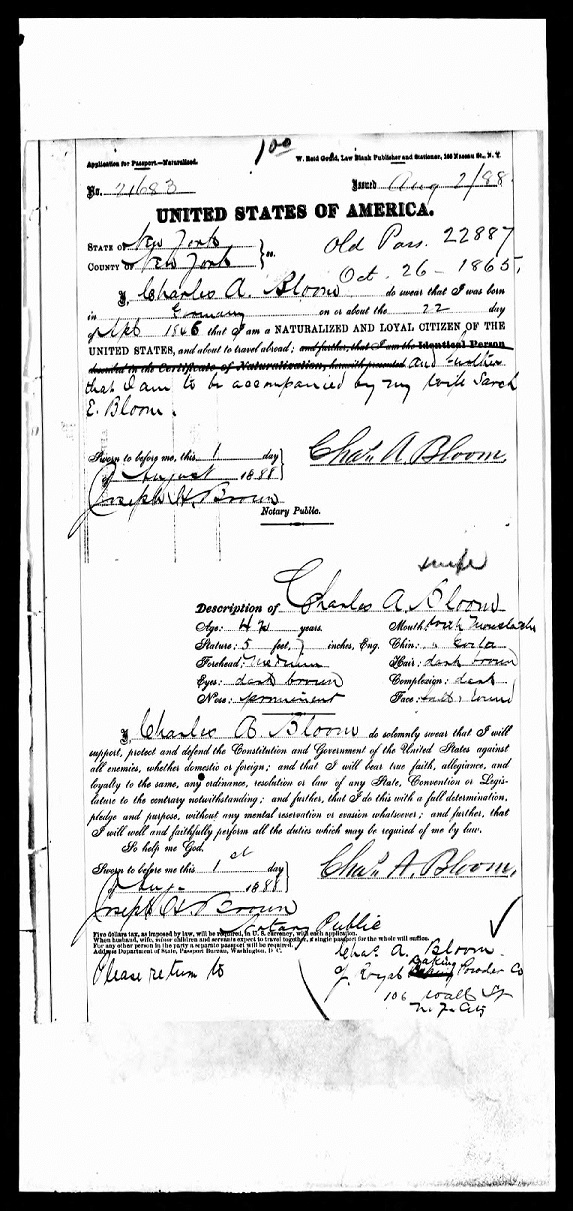 1 00
Application for Passport.—Naturalized.
W. Reid Gould, Law Blank Publisher and Stationer, 168 Nassau St., N. Y.
No. 21683
Issued Aug 2/88.
UNITED STATES OF AMERICA.
STATE OF New York
COUNTY OF New York } ss.
Old Pass. 22887
Oct. 26 - 1865.
I, Charles A. Bloom do swear that I was born
in Germany on or about the 22 day
of 1846 that I am a NATURALIZED AND LOYAL CITIZEN OF THE
UNITED STATES, and about to travel abroad; and further, that I am the Identical Person
described in the Certificate of Naturalization, herewith presented and further
that I am to be accompanied by my wife Sarah
E. Bloom.
Sworn to before me, this 1 day
of August 1888
Chas. A. Bloom.
Joseph H. Brown
Notary Public.
Description of Charles A. Bloom
Age: 42 years.
Mouth: with Moustache
Stature: 5 feet, 7 inches, Eng.
Chin: " Goatee
Forehead: Medium
Hair: dark brown
Eyes: dark brown
Complexion: dark
Nose: prominent
Face: round
I, Charles A. Bloom do solemnly swear that I will
support, protect and defend the Constitution and Government of the United States against
all enemies, whether domestic or foreign; and that I will bear true faith, allegiance, and
loyalty to the same, any ordinance, resolution or law of any State, Convention or Legis-
lature to the contrary notwithstanding; and further, that I do this with a full determination,
pledge and purpose, without any mental reservation or evasion whatsoever; and further, that
I will well and faithfully perform all the duties which may be required of me by law.
So help me God.
Sworn to before me this 1 st day
of Aug. 1888
Chas. A. Bloom.
Joseph H. Brown
Notary Public
Five dollars tax, as imposed by law, will be required, in U. S. currency, with each application.
When husband, wife, minor children and servants expect to travel together, a single passport for the whole will suffice.
For any other person in the party a separate passport will be required.
Address Department of State, Passport Bureau, Washington, D. C.
Please return to
Chas. A. Bloom.
of Royal Baking Powder Co
106 Wall St
N. Y. City